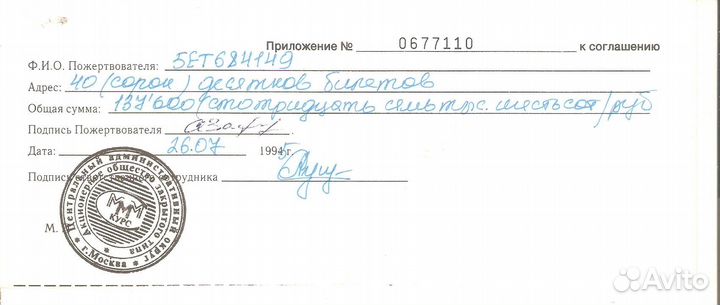 Приложение № 0677110 к соглашению
Ф.И.О. Пожертвователя: 5ЕТ684149
Адрес: 40 (сорок) десятков билетов
Общая сумма: 137'600 (сто тридцать семь тыс. шестьсот) руб
Подпись Пожертвователя
Дата: 26.07 1994 г.
Подпись сотрудника
М.
Центральный административный округ
Акционерное общество закрытого типа
МММ
КУРС
* г. Москва *
Avito